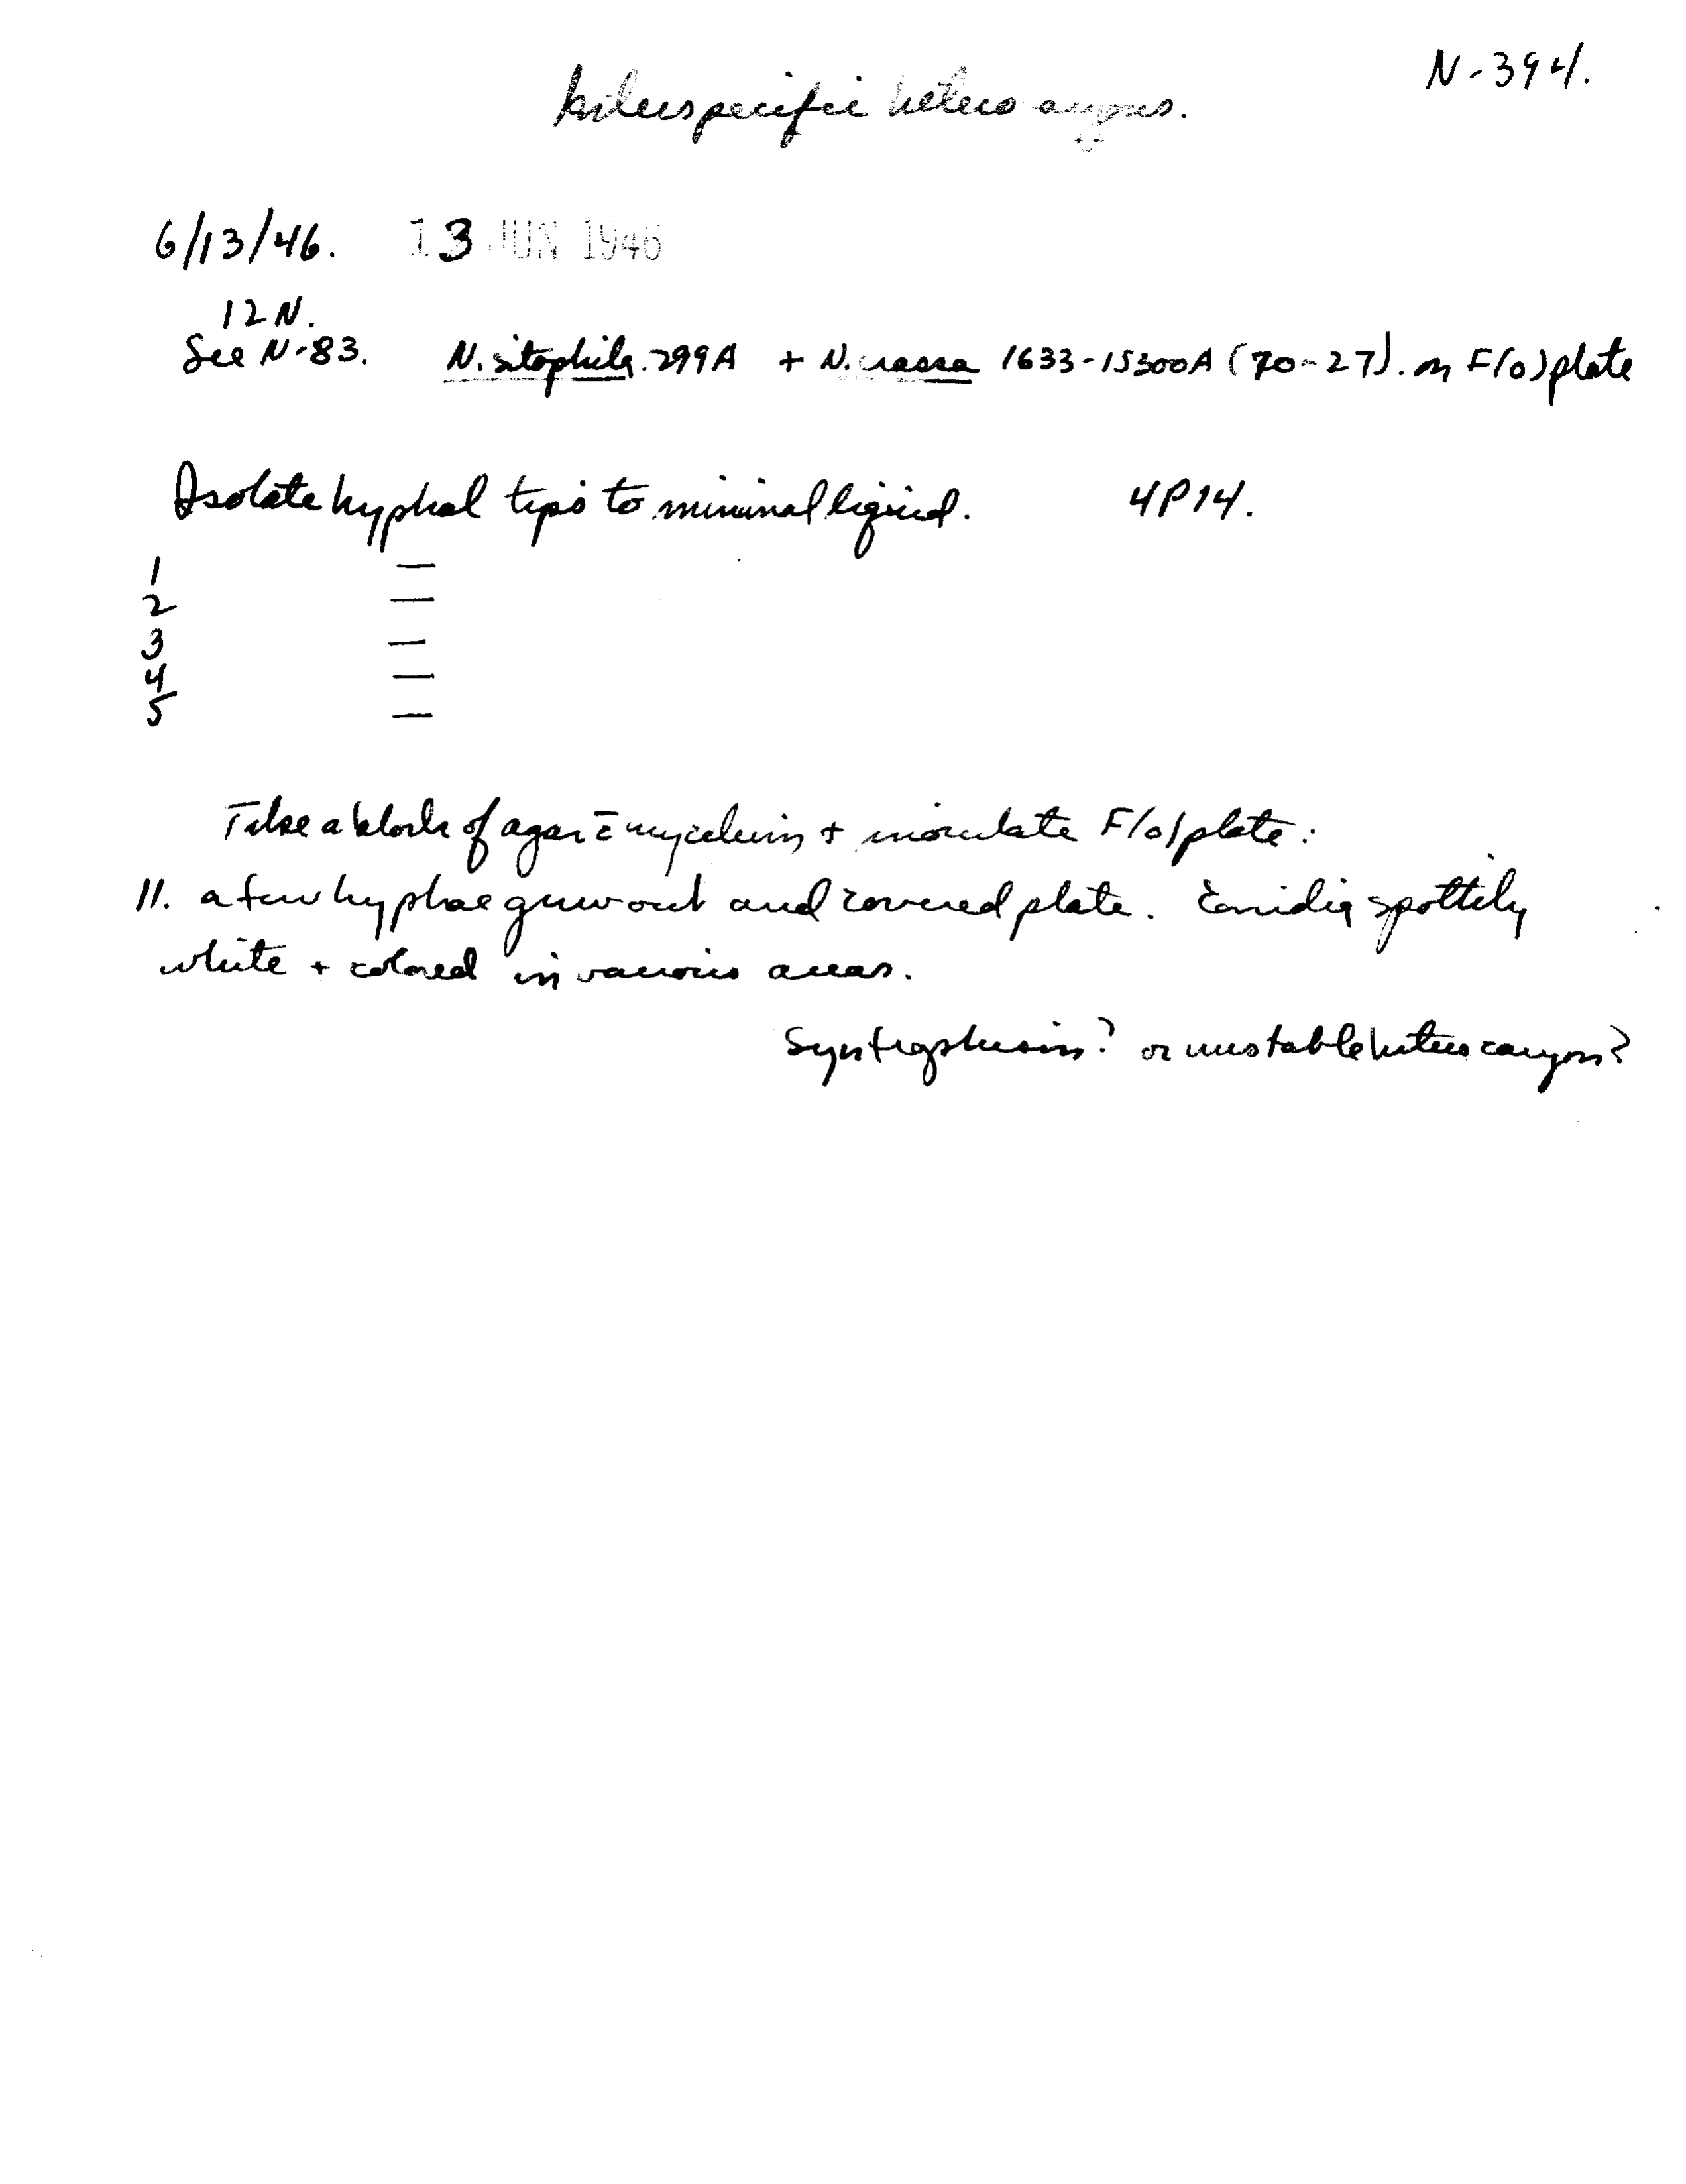 N-394.
Interspecific heterocaryons.
6/13/46. 13 JUN 1946
12N.
See N-83. N. sitophila 299A + N. crassa 1633-15300A (70-27). on F(0) plate
Isolate hyphal tips to minimal liquid. 4P14.
1 —
2 —
3 —
4 —
5 —
Take a block of agar c̄ mycelium + inoculate F(0) plate:
11. a few hyphae grew out and covered plate. Conidia spottily
white + colored in various areas.
Syntrophism? or unstable heterocaryon?